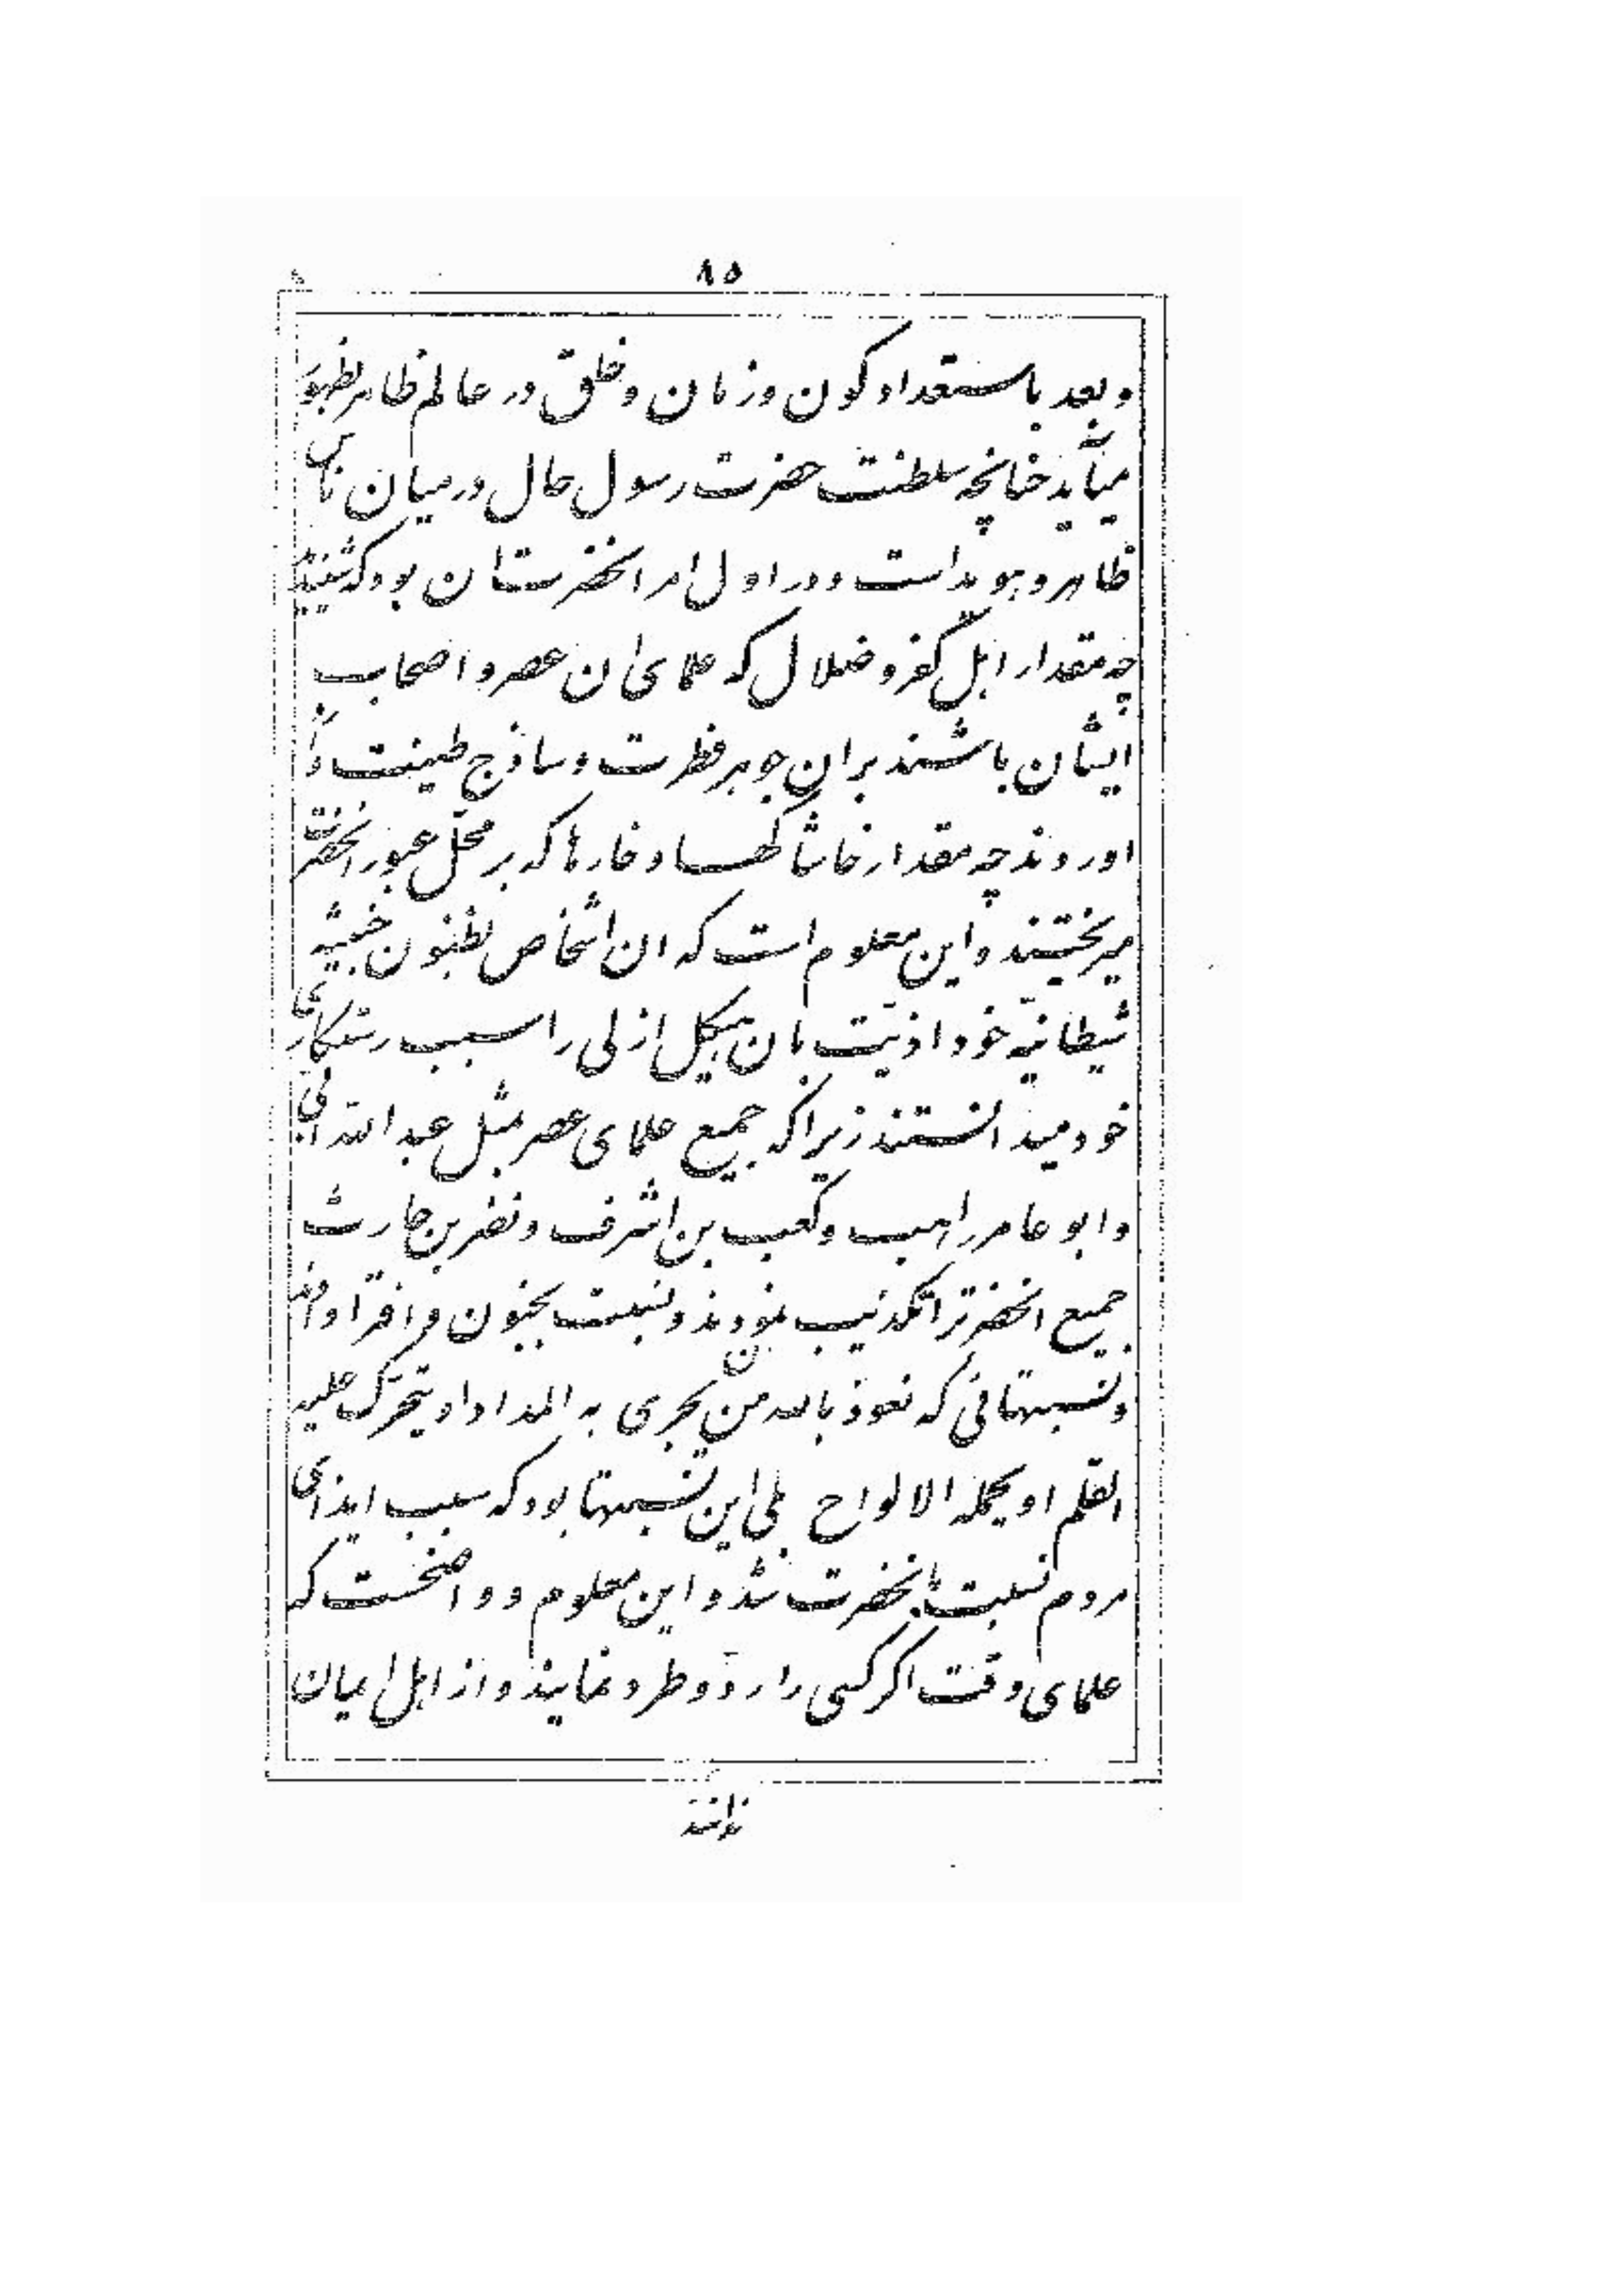 ٨٥
و بعد باستعداد کون و زمان و خلق در عالم ظاهر بظهور
میآید چنانچه سلطنت حضرت رسول حال در میان ناس
ظاهر و هویداست و در اول امر انحضرت ان بود که شنیدید
چه مقدار اهل کفر و ضلال که علمای ان عصر و اصحاب
ایشان باشند بران جوهر فطرت و ساذج طینت وارد
اوردند چه مقدار خاشاکها و خارها که بر محلّ عبور انحضرت
میریختند و این معلوم است که ان اشخاص بظنون خبیثیه
شیطانیّه خود اذیّت بان هیکل ازلی را سبب رستکاری
خود میدانستند زیرا که جمیع علمای عصر مثل عبدالله ابی
و ابو عامر راهب و کعب بن اشرف و نضر بن حارث
جمیع انحضرترا تکذیب نمودند و نسبت بجنون و افترا دادند
و نسبتهائی که نعوذ بالله من ان یجری به المداد او یتحرّک علیه
القلم او یحمله الالواح بلی این نسبتها بود که سبب ایذای
مردم نسبت بانحضرت شد و این معلوم و واضحست که
علمای وقت اکر کسی را ردّ و طرد نمایند و از اهل ایمان
ندانند